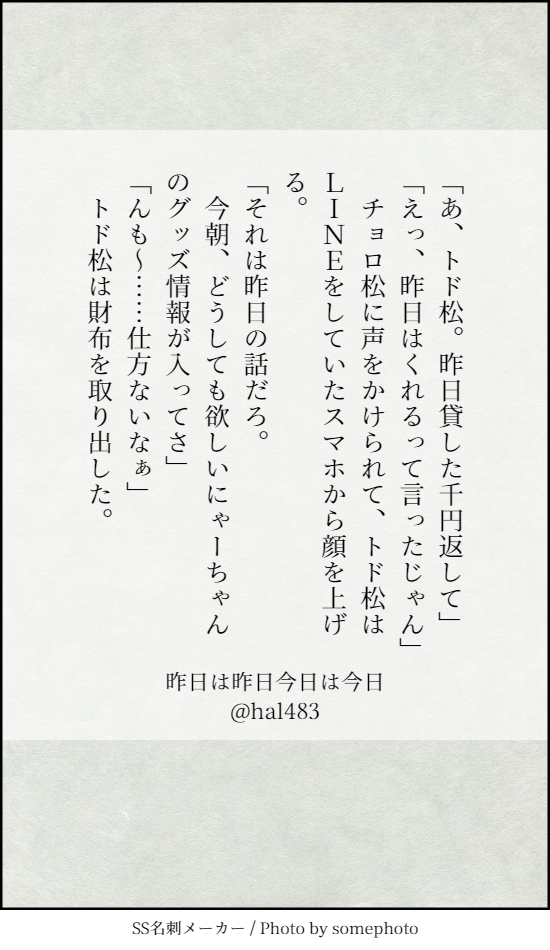 「あ、トド松。昨日貸した千円返して」
「えっ、昨日はくれるって言ったじゃん」
　チョロ松に声をかけられて、トド松は
ＬＩＮＥをしていたスマホから顔を上げ
る。
「それは昨日の話だろ。
　今朝、どうしても欲しいにゃーちゃん
のグッズ情報が入ってさ」
「んも～……仕方ないなぁ」
　トド松は財布を取り出した。
昨日は昨日今日は今日
@hal483
SS名刺メーカー / Photo by somephoto